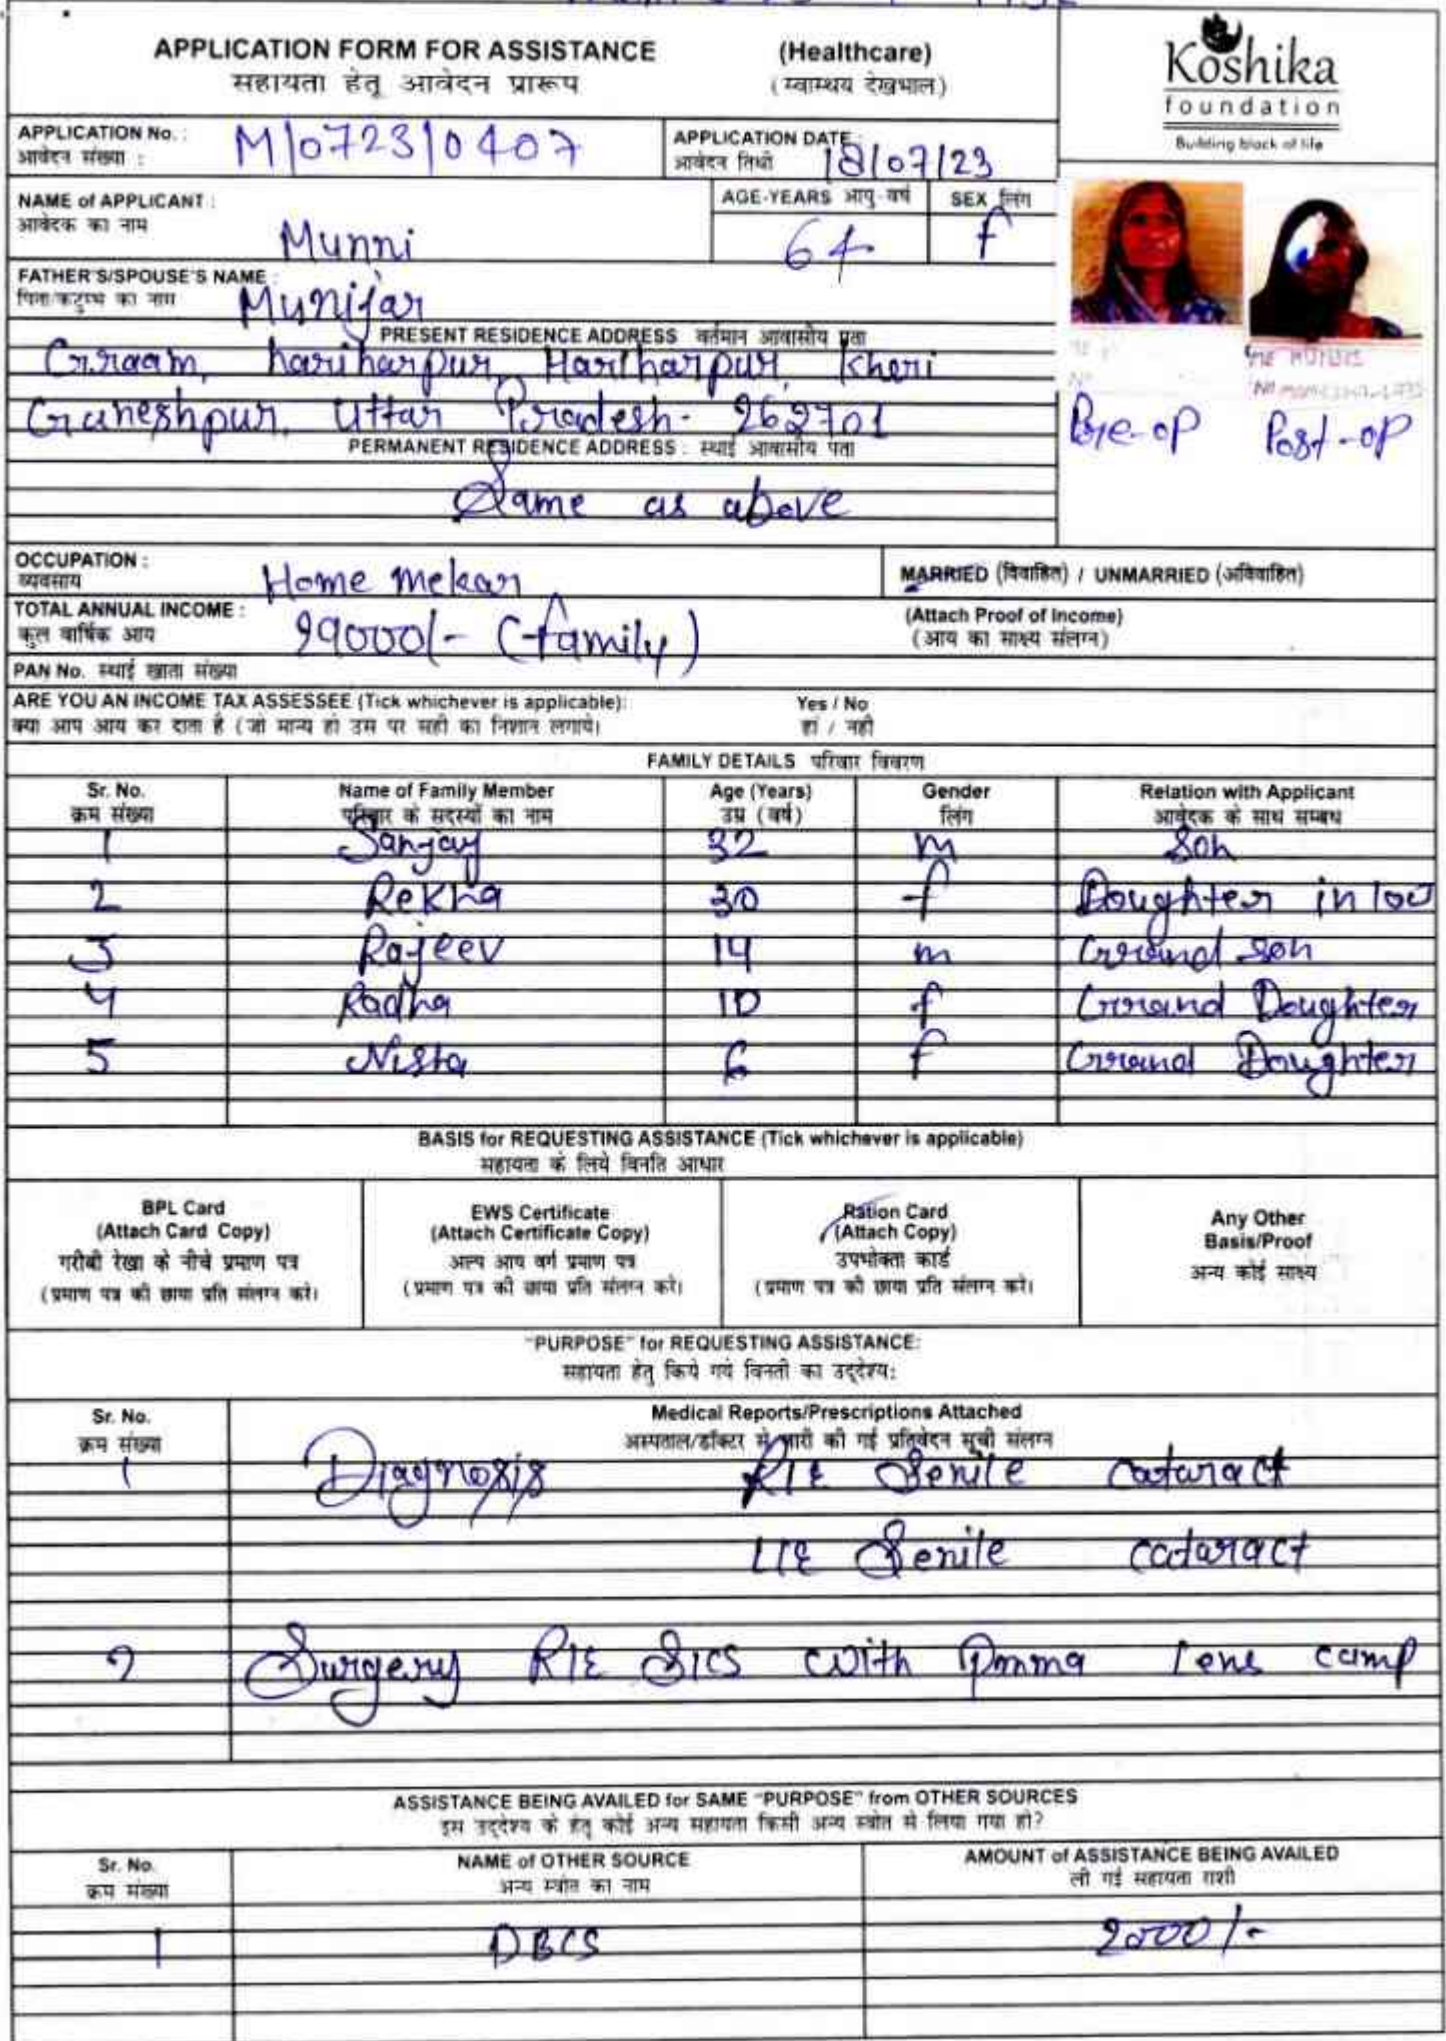 APPLICATION FORM FOR ASSISTANCE (Healthcare)
सहायता हेतू आवेदन प्रारूप (स्वाम्थय देखभाल)
Koshika
foundation
Building block of life
APPLICATION No. : M/0723/0407
आवेदन संख्या :
APPLICATION DATE : 18/07/23
आवेदन तिथी
NAME of APPLICANT : Munni
आवेदक का नाम
AGE-YEARS आयु-वर्ष 64
SEX लिंग f
FATHER'S/SPOUSE'S NAME : Munijar
पिता/कटुम्भ का नाम
PRESENT RESIDENCE ADDRESS वर्तमान आवासीय पता
Graam, hariharpur, Hariharpur, Kheri
Ganeshpur, Uttar Pradesh- 262701
Pre-op Post-op
PERMANENT RESIDENCE ADDRESS : स्थाई आवासीय पता
Same as above
OCCUPATION : Home mekar
व्यवसाय
MARRIED (विवाहित) / UNMARRIED (अविवाहित)
TOTAL ANNUAL INCOME : 29000/- (family)
कुल वार्षिक आय
(Attach Proof of Income)
(आय का साक्ष्य संलग्न)
PAN No. स्थाई खाता संख्या
ARE YOU AN INCOME TAX ASSESSEE (Tick whichever is applicable): Yes / No
क्या आप आय कर दाता है (जो मान्य हो उस पर सही का निशान लगाये। हां / नही
FAMILY DETAILS परिवार विवरण
Sr. No. Name of Family Member Age (Years) Gender Relation with Applicant
क्रम संख्या परिवार के सदस्यों का नाम उम्र (वर्ष) लिंग आवेदक के साथ सम्बध
1 Sanjay 32 m Son
2 Rekha 30 f Doughter in low
3 Rajeev 14 m Grand son
4 Radha 10 f Grand Doughter
5 Nisha 6 f Grand Doughter
BASIS for REQUESTING ASSISTANCE (Tick whichever is applicable)
सहायता के लिये विनति आधार
BPL Card
(Attach Card Copy)
गरीबी रेखा के नीचे प्रमाण पत्र
(प्रमाण पत्र की छाया प्रति संलग्न करे।
EWS Certificate
(Attach Certificate Copy)
अल्प आय वर्ग प्रमाण पत्र
(प्रमाण पत्र की छाया प्रति संलग्न करे।
Ration Card
(Attach Copy)
उपभोक्ता कार्ड
(प्रमाण पत्र की छाया प्रति संलग्न करे।
Any Other
Basis/Proof
अन्य कोई साक्ष्य
"PURPOSE" for REQUESTING ASSISTANCE:
सहायता हेतु किये गये विनती का उद्देश्य:
Sr. No. Medical Reports/Prescriptions Attached
क्रम संख्या अस्पताल/डॉक्टर से जारी की गई प्रतिवेदन सूची संलग्न
1 Diagnosis R/E Senile cataract
L/E Senile cataract
2 Surgery R/E SICS with Pmma lens camp
ASSISTANCE BEING AVAILED for SAME "PURPOSE" from OTHER SOURCES
इस उद्देश्य के हेतु कोई अन्य सहायता किसी अन्य स्त्रोत से लिया गया हो?
Sr. No. NAME of OTHER SOURCE AMOUNT of ASSISTANCE BEING AVAILED
क्रम संख्या अन्य स्त्रोत का नाम ली गई सहायता राशी
1 DBCS 2000/-